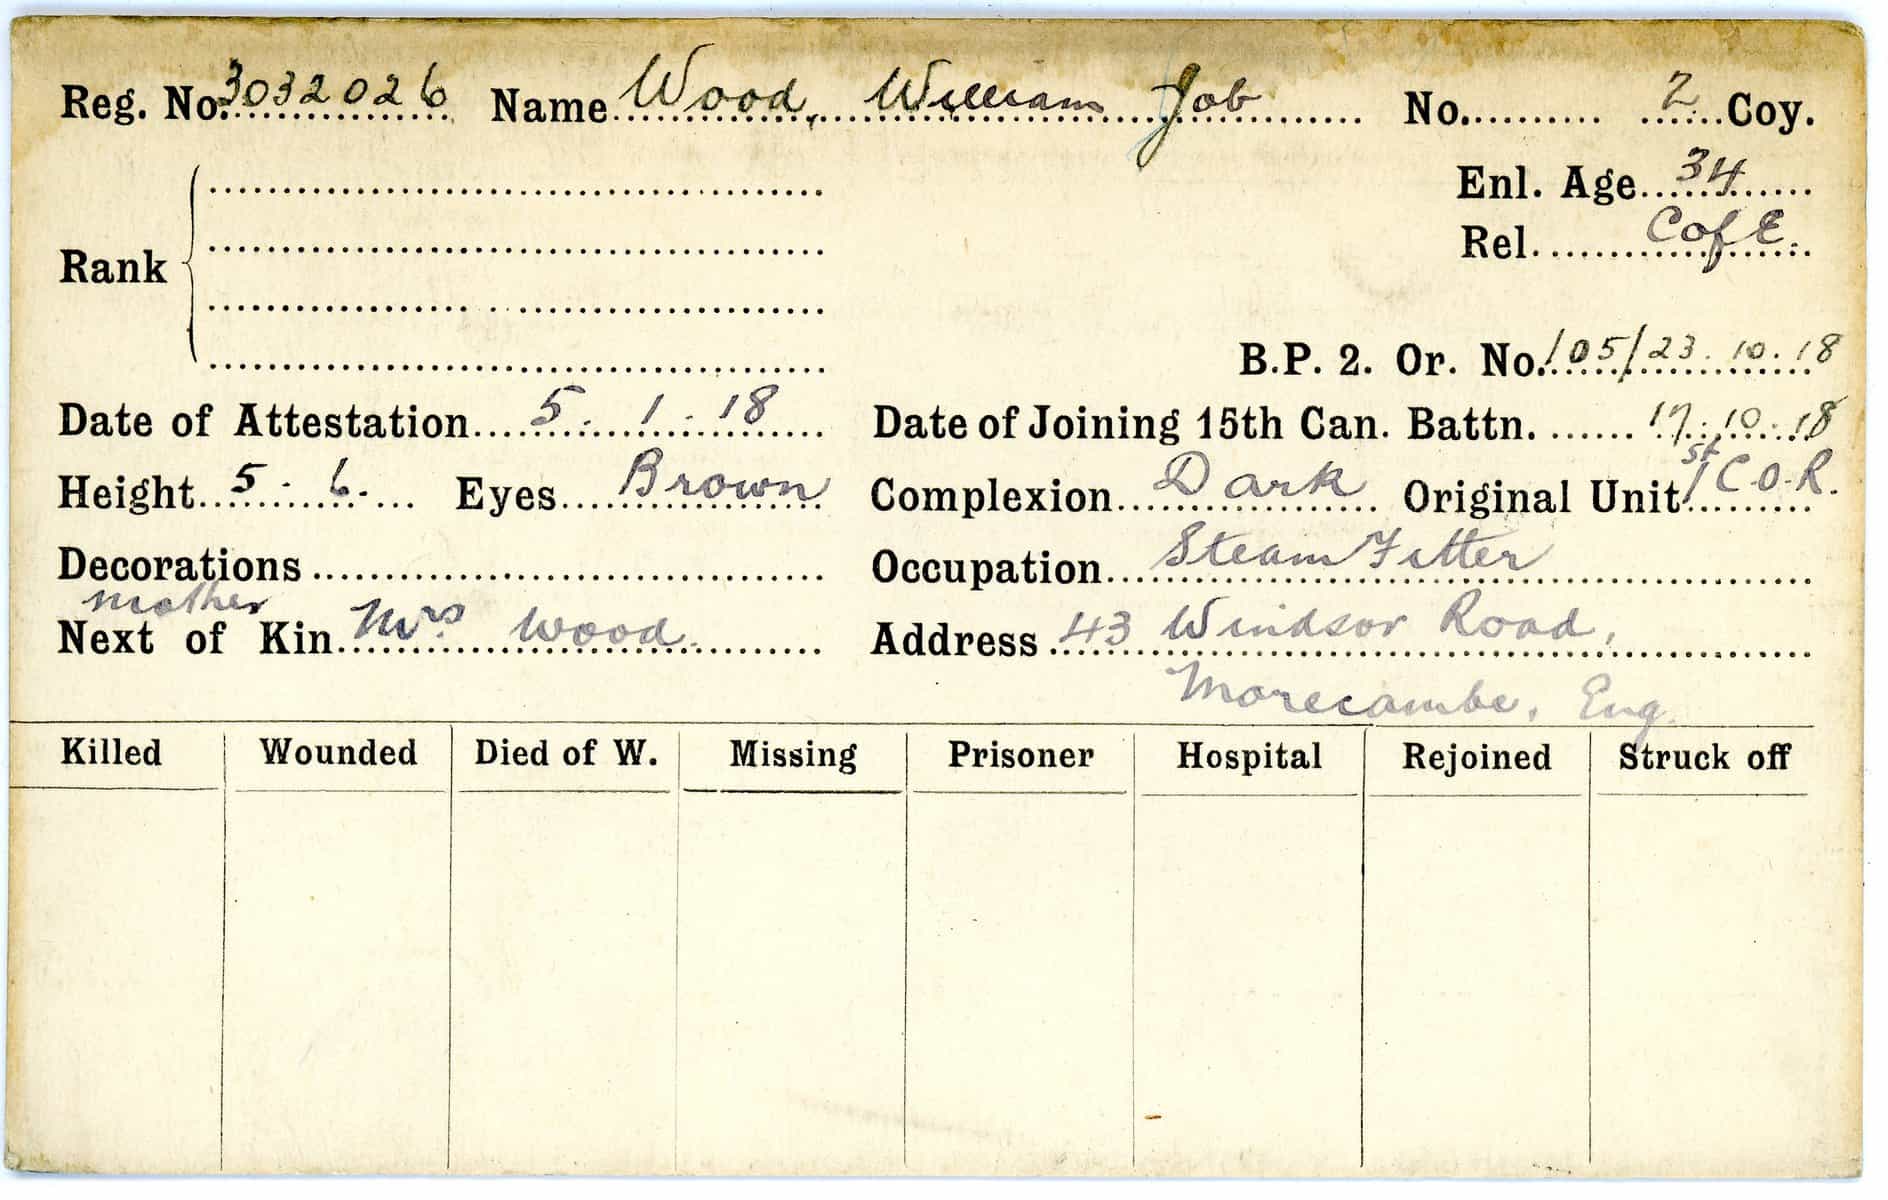 Reg. No. 3032026 Name Wood, William Job No. 2 Coy.
Enl. Age 34
Rel. C of E.
Rank
B.P. 2. Or. No. 105/23.10.18
Date of Attestation 5.1.18 Date of Joining 15th Can. Battn. 17.10.18
Height 5-6. Eyes Brown Complexion Dark Original Unit 1st C.O.R.
Decorations Occupation Steam Fitter
mother
Next of Kin Mrs Wood. Address 43 Windsor Road,
Morecambe, Eng.
Killed Wounded Died of W. Missing Prisoner Hospital Rejoined Struck off